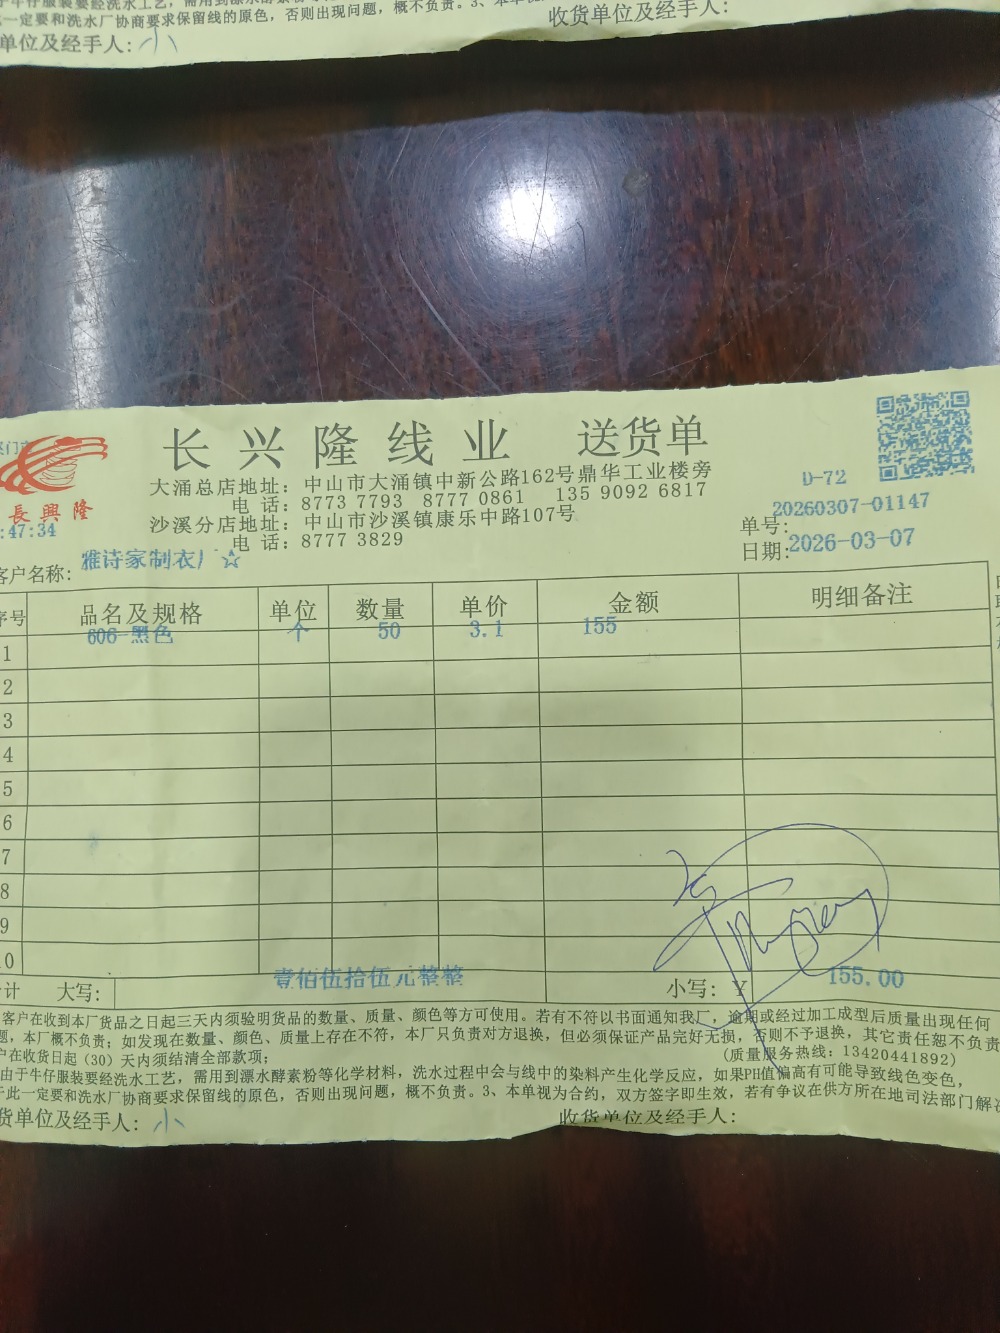 于牛仔服装要经洗水工艺，需用到漂水酵素粉等
此一定要和洗水厂协商要求保留线的原色，否则出现问题，概不负责。3、本单视
单位及经手人：小
收货单位及经手人：
长兴隆线业 送货单
長興隆
:47:34
大涌总店地址：中山市大涌镇中新公路162号鼎华工业楼旁
电 话：8773 7793 8777 0861 135 9092 6817
沙溪分店地址：中山市沙溪镇康乐中路107号
电 话：8777 3829
D-72
单号：20260307-01147
日期：2026-03-07
客户名称：雅诗家制衣厂☆
序号 品名及规格 单位 数量 单价 金额 明细备注
1 606-黑色 个 50 3.1 155
2
3
4
5
6
7
8
9
10
合计 大写： 壹佰伍拾伍元整整 小写：￥ 155.00
客户在收到本厂货品之日起三天内须验明货品的数量、质量、颜色等方可使用。若有不符以书面通知我厂，逾期或经过加工成型后质量出现任何
题，本厂概不负责；如发现在数量、颜色、质量上存在不符，本厂只负责对方退换，但必须保证产品完好无损，否则不予退换，其它责任恕不负责
户在收货日起（30）天内须结清全部款项；
（质量服务热线：13420441892）
由于牛仔服装要经洗水工艺，需用到漂水酵素粉等化学材料，洗水过程中会与线中的染料产生化学反应，如果PH值偏高有可能导致线色变色，
于此一定要和洗水厂协商要求保留线的原色，否则出现问题，概不负责。3、本单视为合约，双方签字即生效，若有争议在供方所在地司法部门解决
货单位及经手人：小
收货单位及经手人：